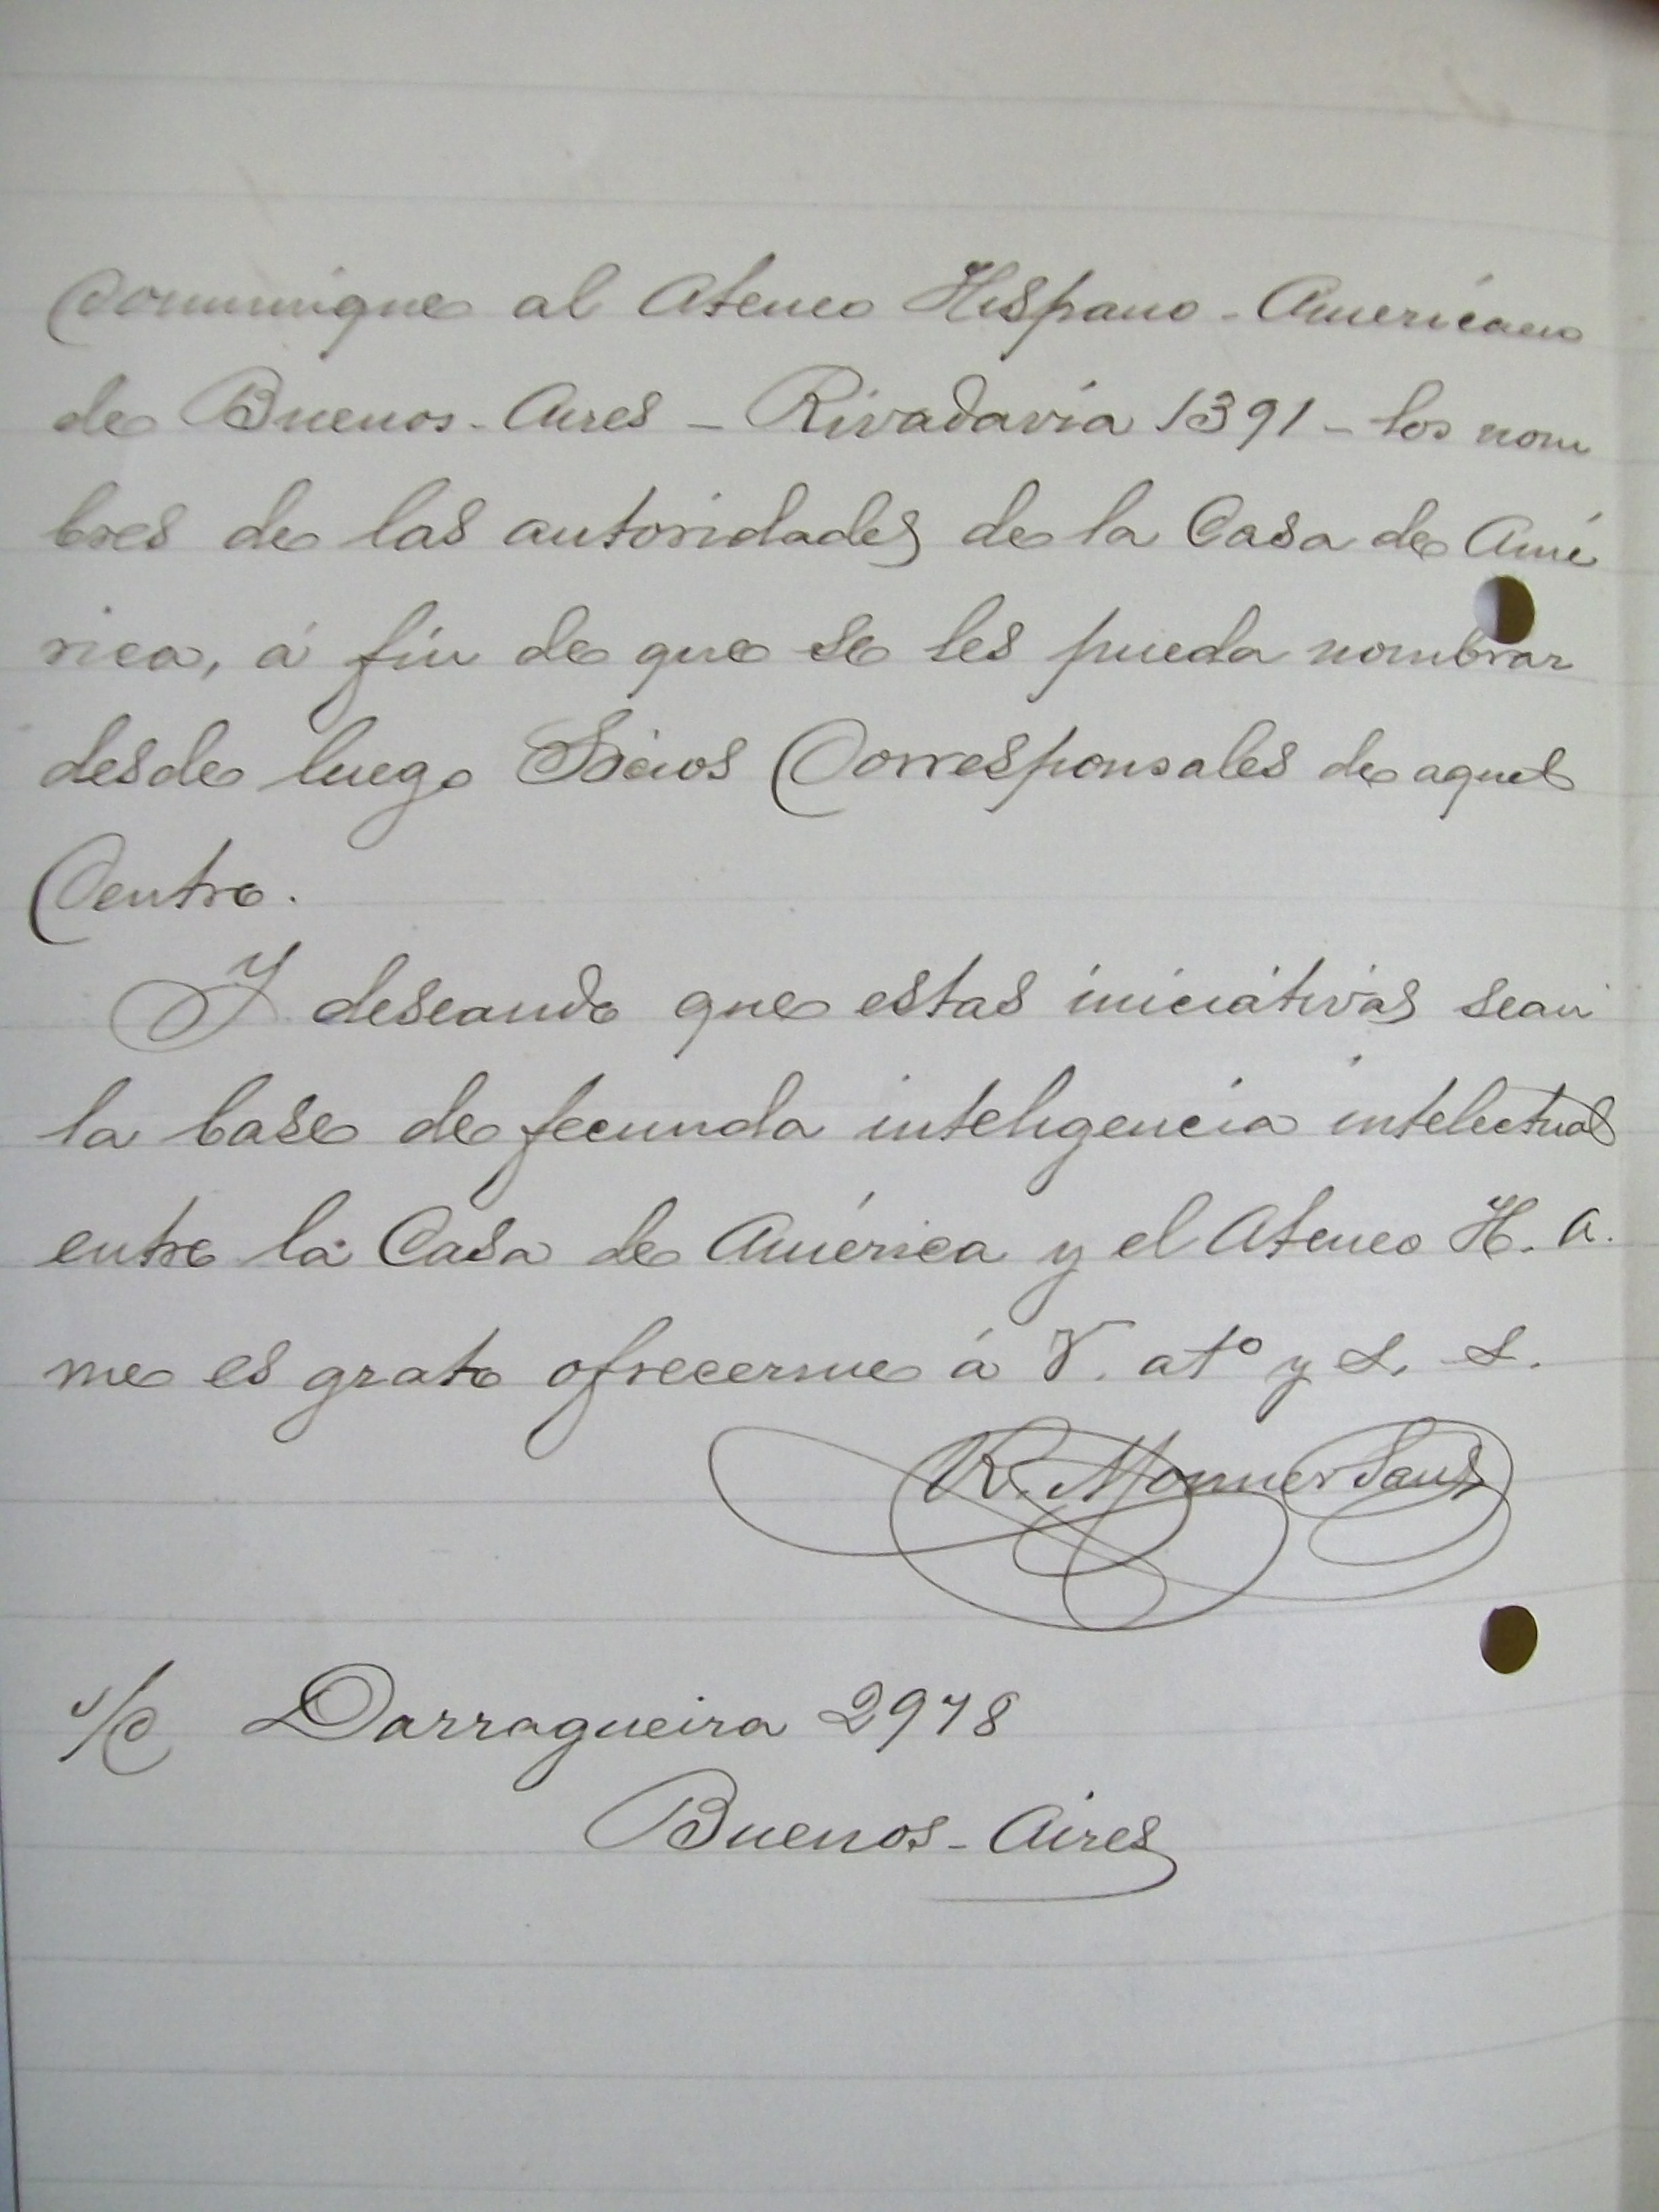 Comunique al Ateneo Hispano-Americano
de Buenos-Aires - Rivadavia 1391 - los nom
bres de las autoridades de la Casa de Amé
rica, á fin de que se les pueda nombrar
desde luego Sócios Corresponsales de aquel
Centro.
Y deseando que estas iniciativas sean
la base de fecunda inteligencia intelectual
entre la Casa de América y el Ateneo H. A.
me es grato ofrecerme á V. atº y S. S.
R. Monner Sans
s/c Darragueira 2978
Buenos-Aires